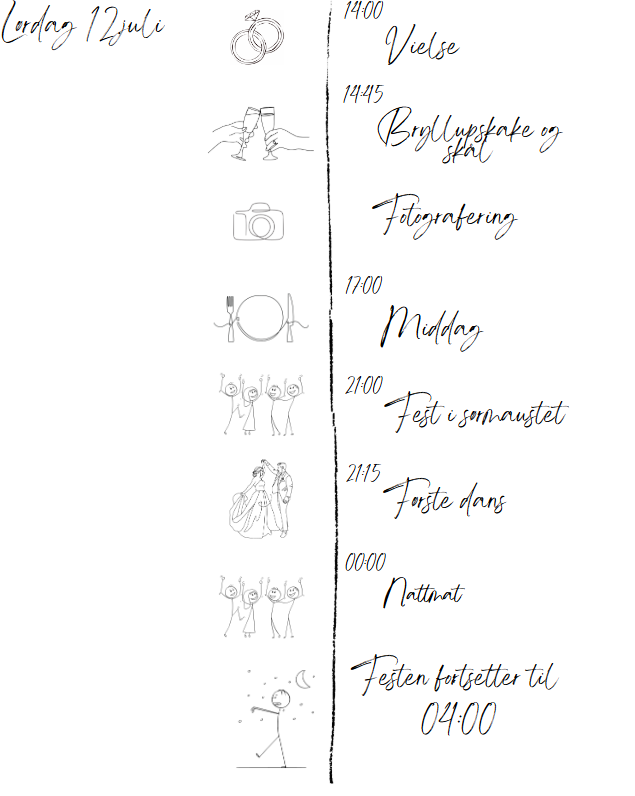 Lørdag 12 juli
14:00
Vielse
14:45
Bryllupskake og
skål
Fotografering
17:00
Middag
21:00
Fest i sørnaustet
21:15
Første dans
00:00
Nattmat
Festen fortsetter til
04:00